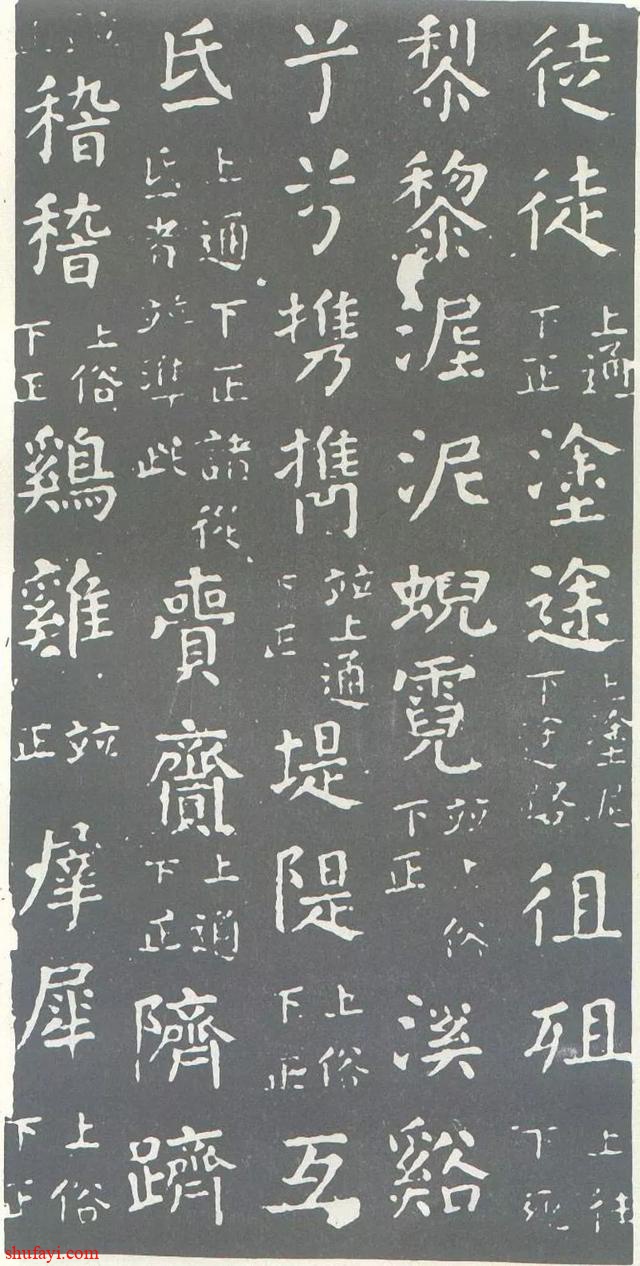 徒徒上通下正塗途上塗泥下途路徂殂上往下死
黎黎埿泥蜺霓並上俗下正溪谿
兮兮携㩗並上通下正堤隄上俗下正互
氐上通下正諸從氐者並準此賷齎上通下正隮躋
稽稽上俗下正鷄雞並正犀犀上俗下正
shufayi.com